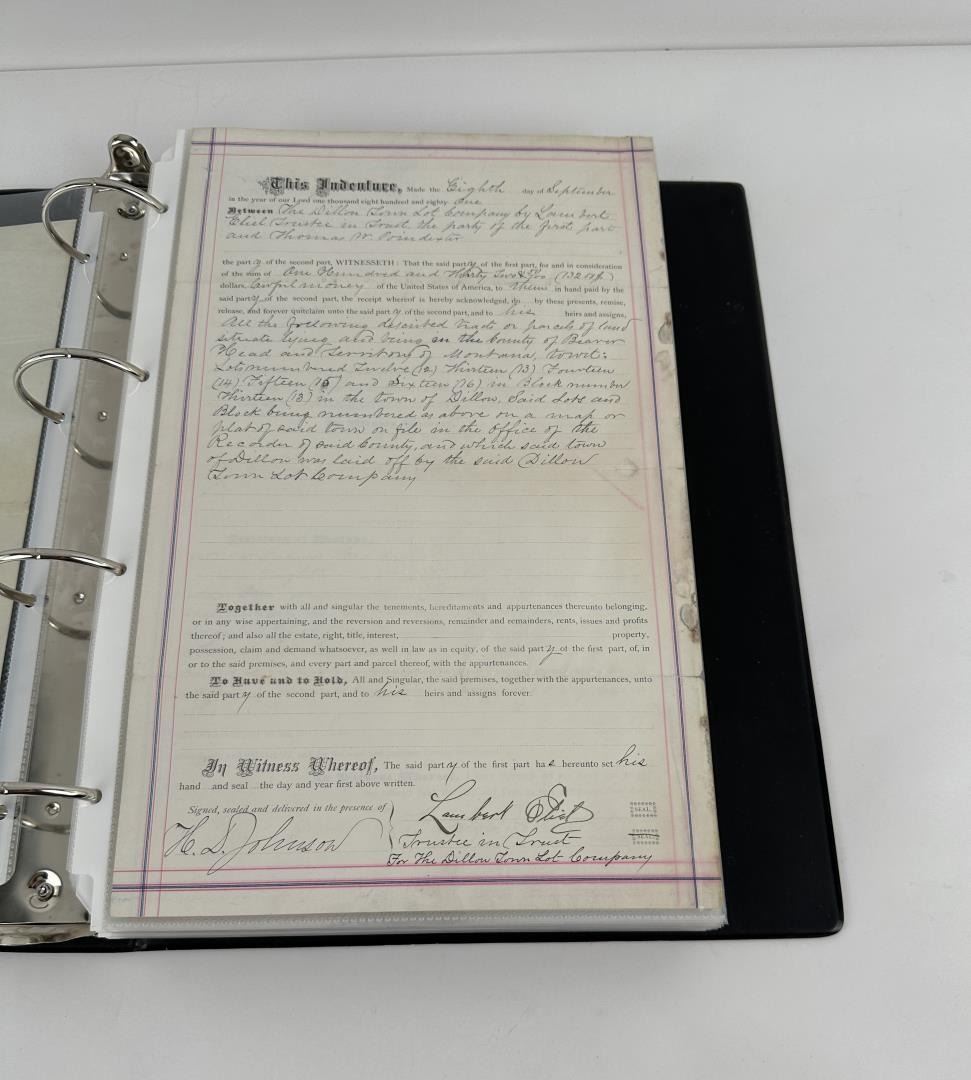 This Indenture, Made the Eighth day of September
in the year of our Lord one thousand eight hundred and eighty One
Between The Dillon Town Lot Company by Lambert
Eliel Trustee in Trust the party of the first part
and Thomas W. Poindexter
the party of the second part, WITNESSETH: That the said party of the first part, for and in consideration
of the sum of One Hundred and Thirty Two &
dollars, lawful money of the United States of America, to them in hand paid by the
said party of the second part, the receipt whereof is hereby acknowledged, do by these presents, remise,
release, and forever quitclaim unto the said party of the second part, and to his heirs and assigns,
All the following described tracts or parcels of land
situate lying and being in the County of Beaver
Head and Territory of Montana, towit:
Lots numbered Twelve (12) Thirteen (13) Fourteen
(14) Fifteen (15) and Sixteen (16) in Block number
Thirteen (13) in the town of Dillon, Said Lots and
Block being numbered as above on a map or
plat of said town on file in the Office of the
Recorder of said County, and which said town
of Dillon was laid off by the said Dillon
Town Lot Company
Together with all and singular the tenements, hereditaments and appurtenances thereunto belonging,
or in any wise appertaining, and the reversion and reversions, remainder and remainders, rents, issues and profits
thereof; and also all the estate, right, title, interest, property,
possession, claim and demand whatsoever, as well in law as in equity, of the said party of the first part, of, in
or to the said premises, and every part and parcel thereof, with the appurtenances.
To Have and to Hold, All and Singular, the said premises, together with the appurtenances, unto
the said party of the second part, and to his heirs and assigns forever.
In Witness Whereof, The said party of the first part has hereunto set his
hand and seal the day and year first above written.
Signed, sealed and delivered in the presence of
H. D. Johnson
Lambert Eliel
SEAL
Trustee in Trust
SEAL
For The Dillon Town Lot Company